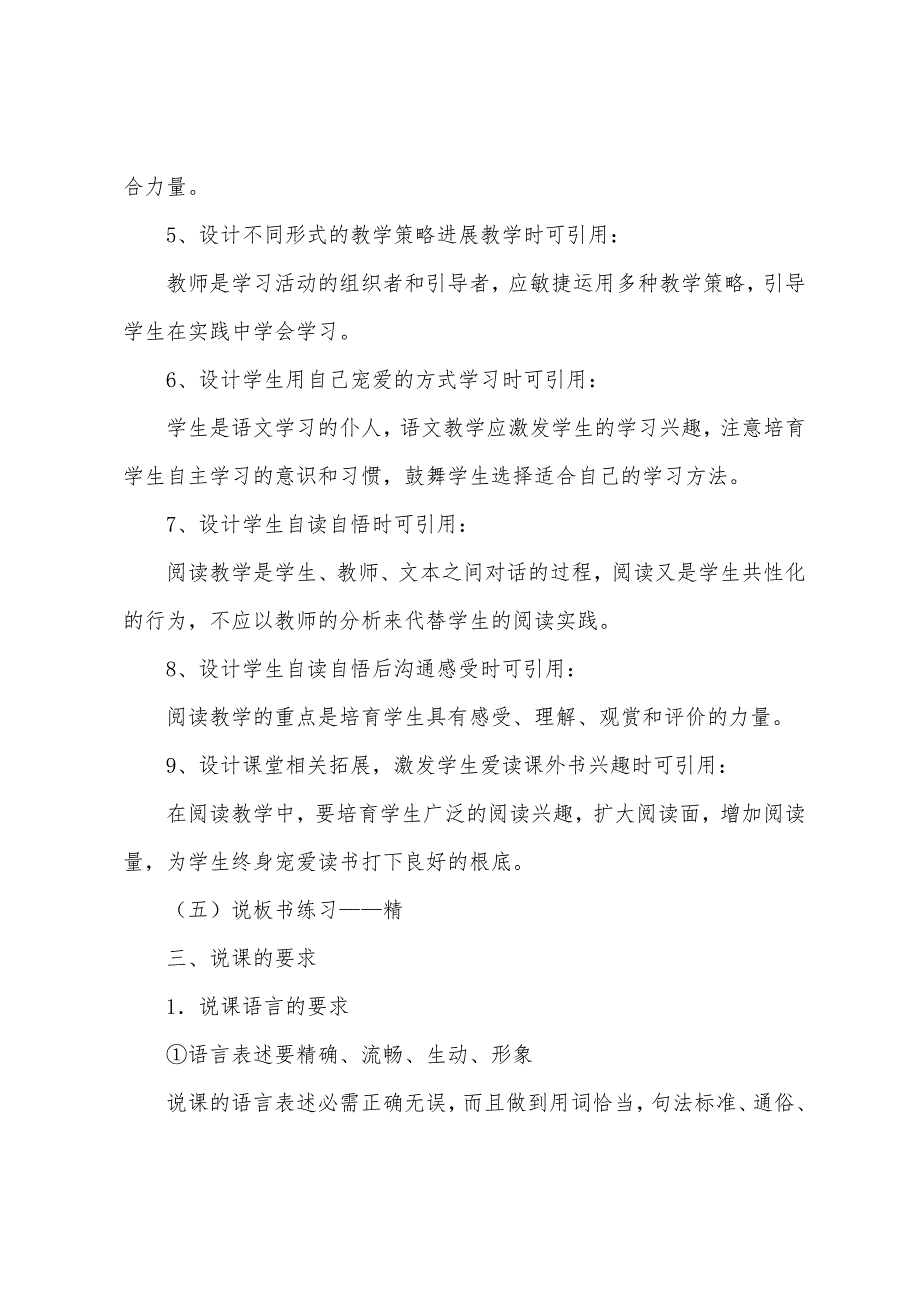 合力量。
5、设计不同形式的教学策略进展教学时可引用：
教师是学习活动的组织者和引导者，应敏捷运用多种教学策略，引导
学生在实践中学会学习。
6、设计学生用自己宠爱的方式学习时可引用：
学生是语文学习的仆人，语文教学应激发学生的学习兴趣，注意培育
学生自主学习的意识和习惯，鼓舞学生选择适合自己的学习方法。
7、设计学生自读自悟时可引用：
阅读教学是学生、教师、文本之间对话的过程，阅读又是学生共性化
的行为，不应以教师的分析来代替学生的阅读实践。
8、设计学生自读自悟后沟通感受时可引用：
阅读教学的重点是培育学生具有感受、理解、观赏和评价的力量。
9、设计课堂相关拓展，激发学生爱读课外书兴趣时可引用：
在阅读教学中，要培育学生广泛的阅读兴趣，扩大阅读面，增加阅读
量，为学生终身宠爱读书打下良好的根底。
（五）说板书练习——精
三、说课的要求
1．说课语言的要求
①语言表述要精确、流畅、生动、形象
说课的语言表述必需正确无误，而且做到用词恰当，句法标准、通俗、